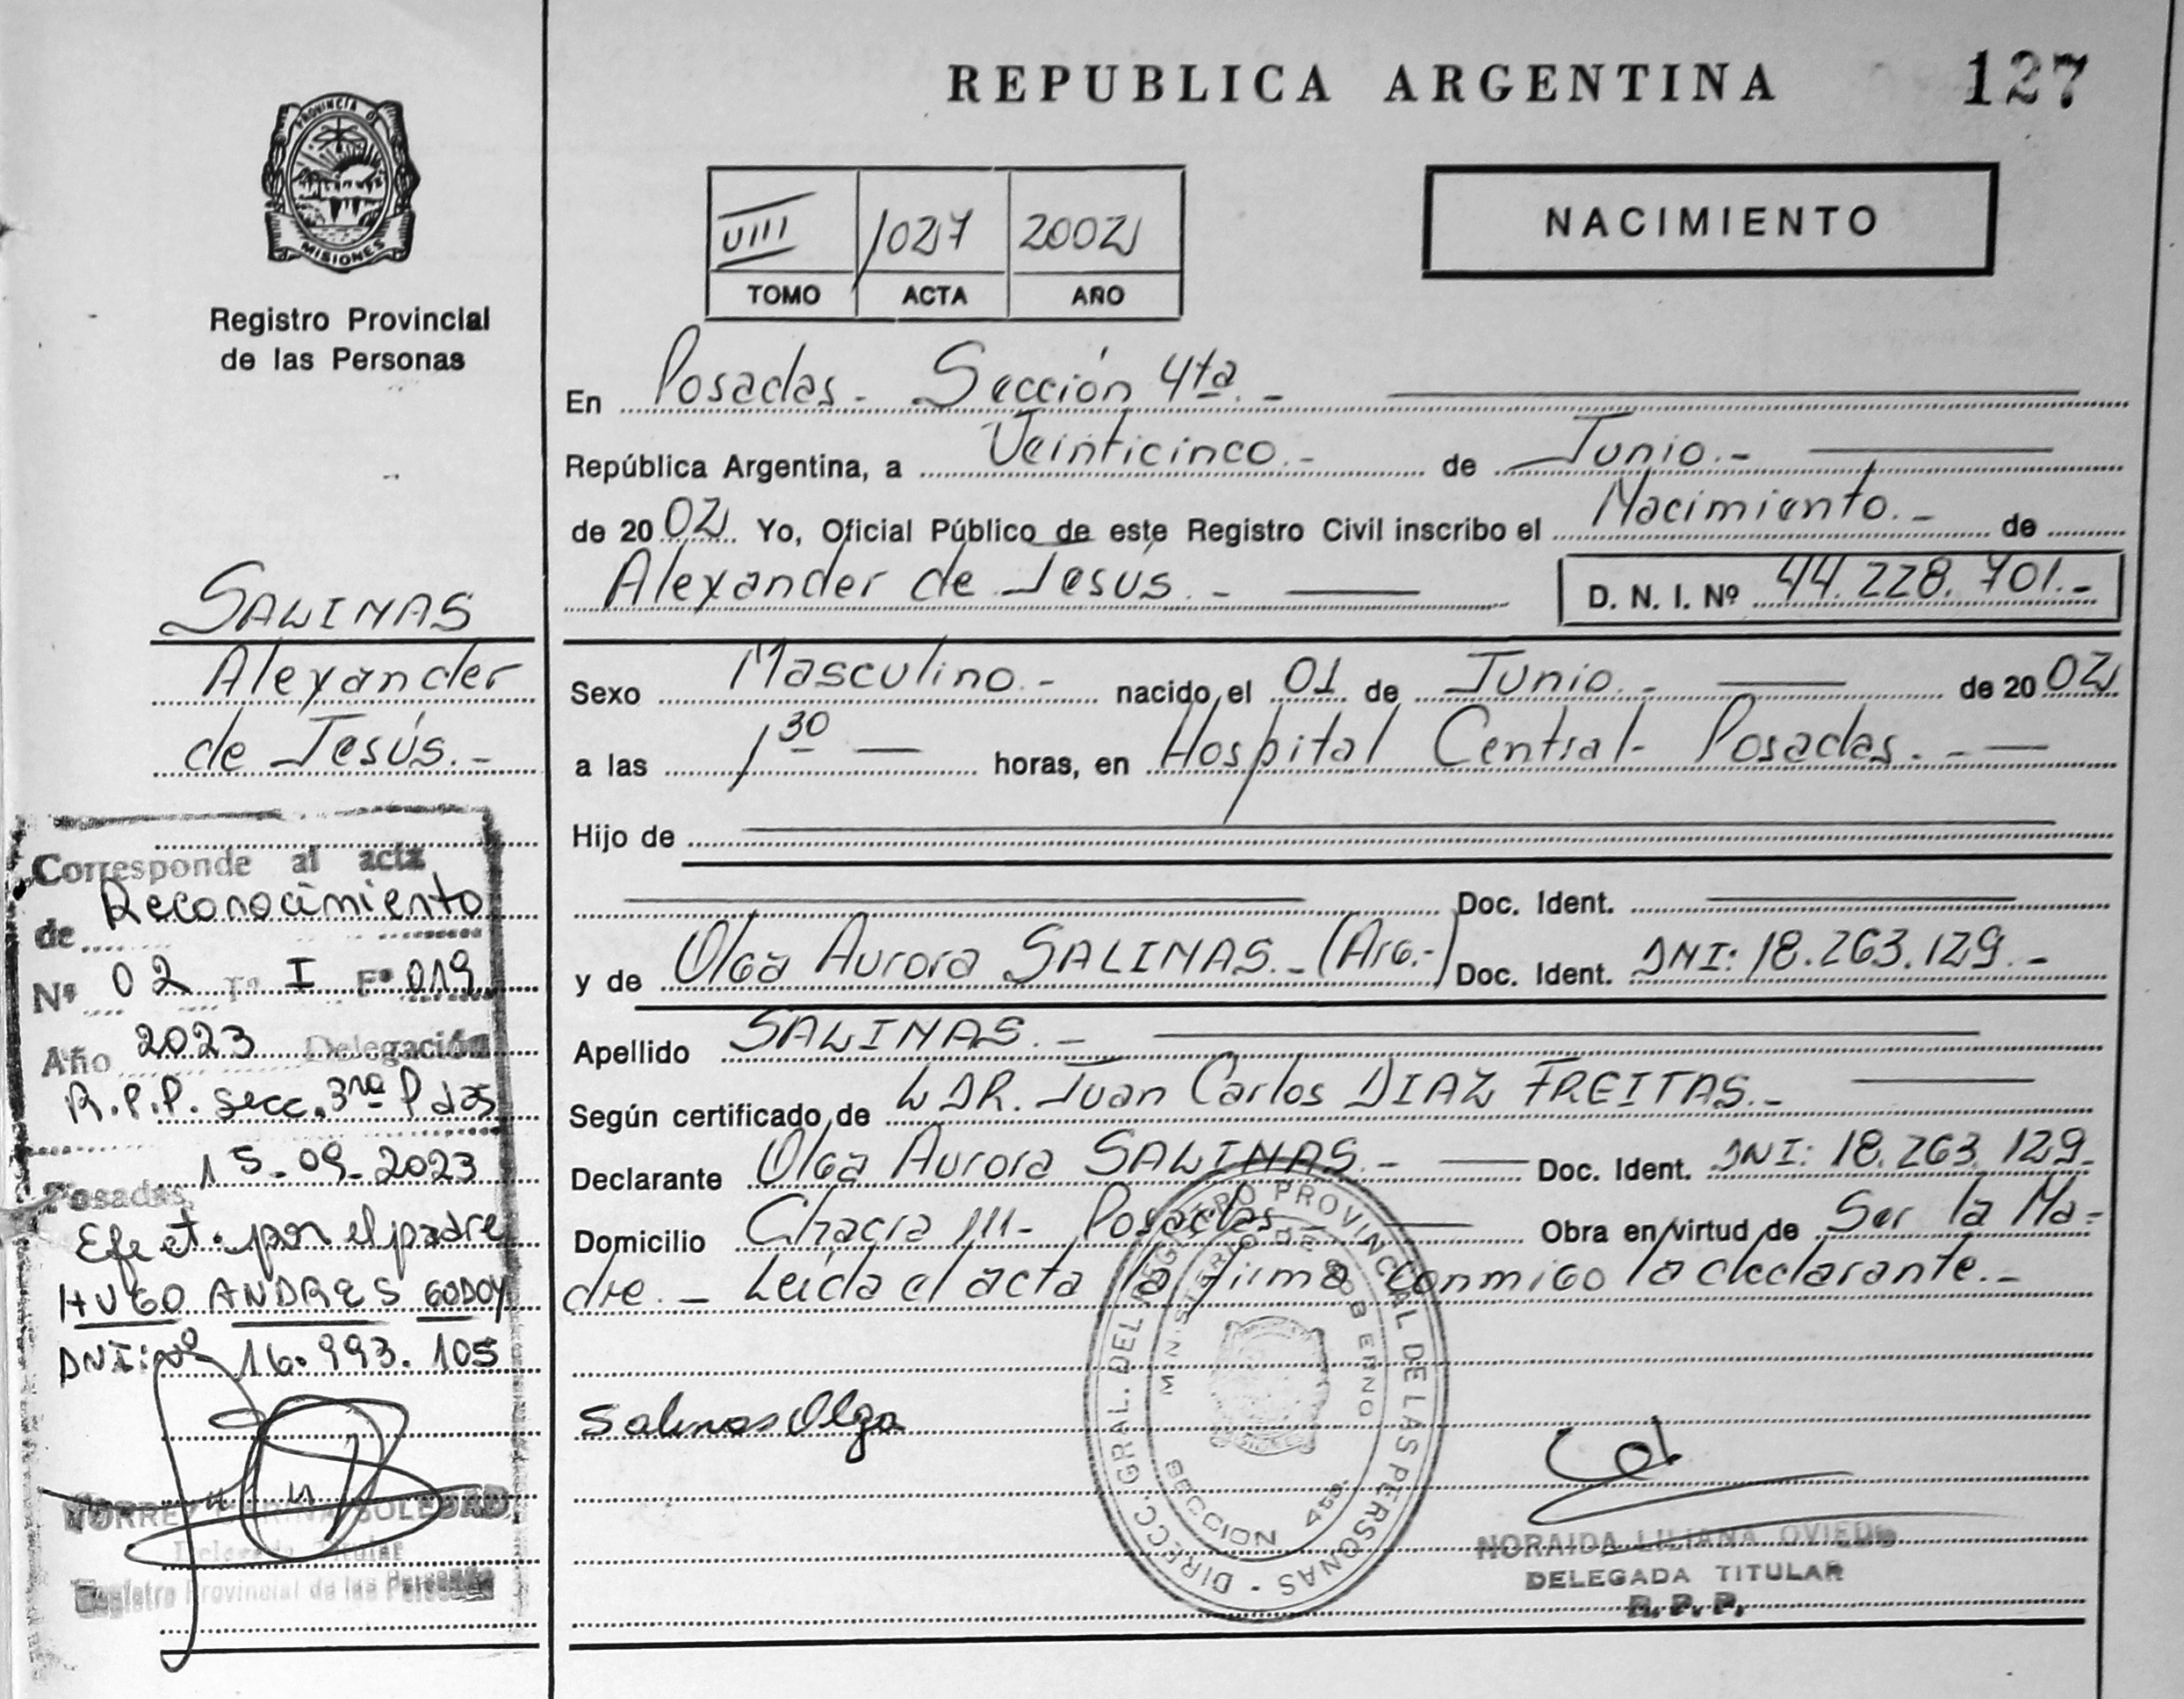 REPUBLICA ARGENTINA 127
PROVINCIA DE
MISIONES
Registro Provincial
de las Personas
VIII 1027 2002
TOMO ACTA AÑO
NACIMIENTO
En Posadas - Sección 4ta.-
República Argentina, a Veinticinco.- de Junio.-
de 2002 Yo, Oficial Público de este Registro Civil inscribo el Nacimiento.- de
Alexander de Jesús.- D. N. I. Nº 44.228.701.-
Sexo Masculino.- nacido el 01 de Junio.- de 2002
a las 1 30 horas, en Hospital Central- Posadas.-
Hijo de
Doc. Ident.
y de Olga Aurora SALINAS.-(Arg.-) Doc. Ident. DNI: 18.263.129.-
Apellido SALINAS.-
Según certificado de DR. Juan Carlos DIAZ FREITAS.-
Declarante Olga Aurora SALINAS.- Doc. Ident. DNI: 18.263.129.
Domicilio Chacra 111- Posadas.- Obra en virtud de Ser la Ma-
dre.- Leída el acta la firma conmigo la declarante.-
Salinas Olga
DIRECC. GRAL. DEL REGISTRO PROVINCIAL DE LAS PERSONAS -
MINISTERIO DE GOBIERNO
SECCION 4ta.
NORAIDA LILIANA OVIEDO
DELEGADA TITULAR
R. P. P.
SALINAS
Alexander
de Jesús.-
Corresponde al acta
de Reconocimiento
Nº 02 Tº I Fº 019
Año 2023 Delegación
R.P.P. secc. 3ra Pdas
Posadas, 15-09-2023
Efect. por el padre
HUGO ANDRES GODOY
DNI: Nº 16.993.105
SOLEDAD
Delegada Titular
Registro Provincial de las Personas